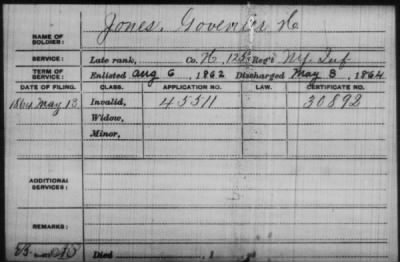 Jones, Goverties H
NAME OF SOLDIER:
SERVICE: Late rank, Co. H, 125 Reg't N.Y. Inf
TERM OF SERVICE: Enlisted Aug 6, 1862 Discharged May 3, 1864
DATE OF FILING. CLASS. APPLICATION NO. LAW. CERTIFICATE NO.
1864 May 13 Invalid, 45511 30892
Widow,
Minor,
ADDITIONAL SERVICES:
REMARKS:
Died , 1